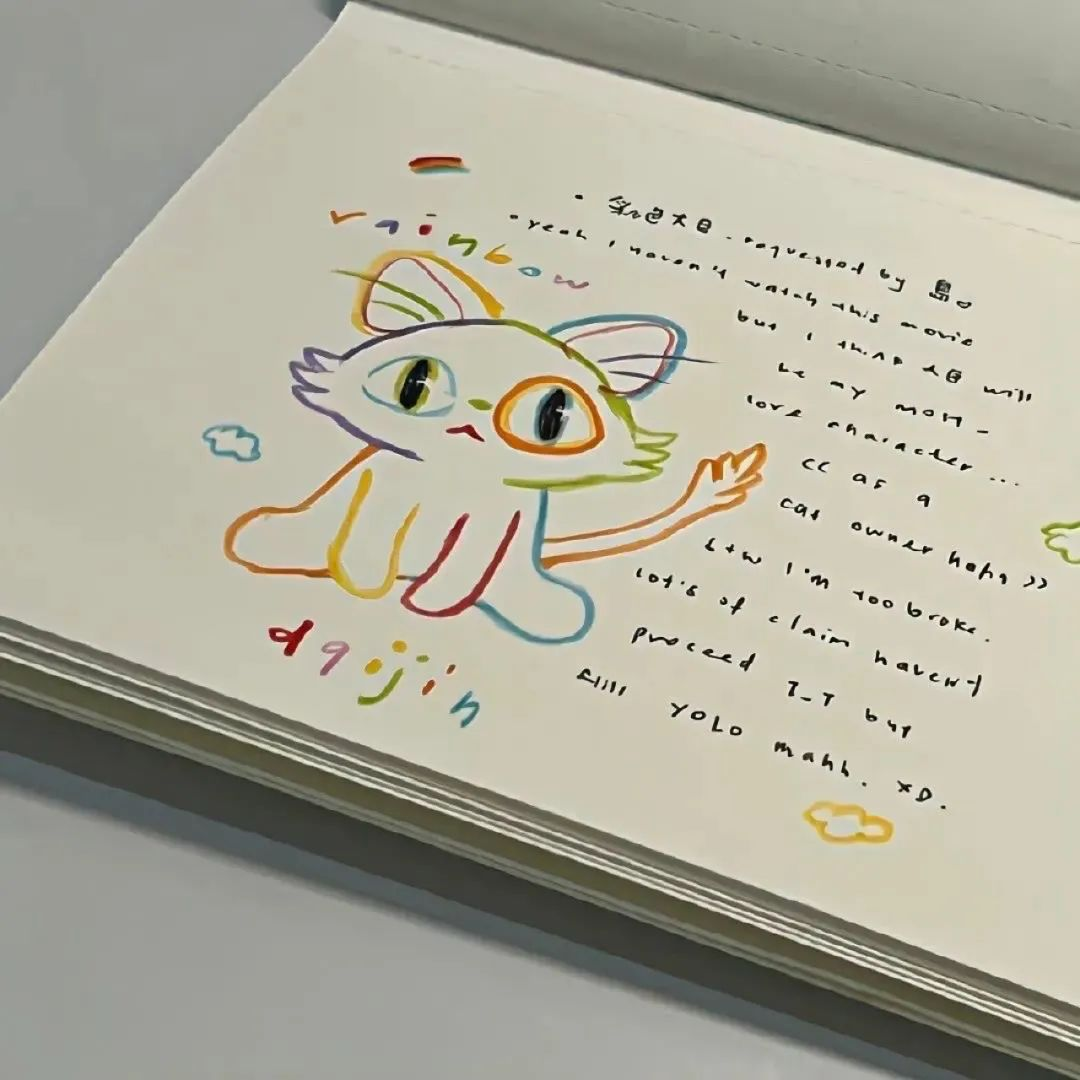 rainbow
. 大臣. requested by 島。
. yeah I haven't watch this movie
but I think 大臣 will
be my most-
love character...
cc as a
cat owner haha >>
btw I'm too broke.
lot's of claim haven't
proceed T_T but
still YOLO mahh. XD.
daijin